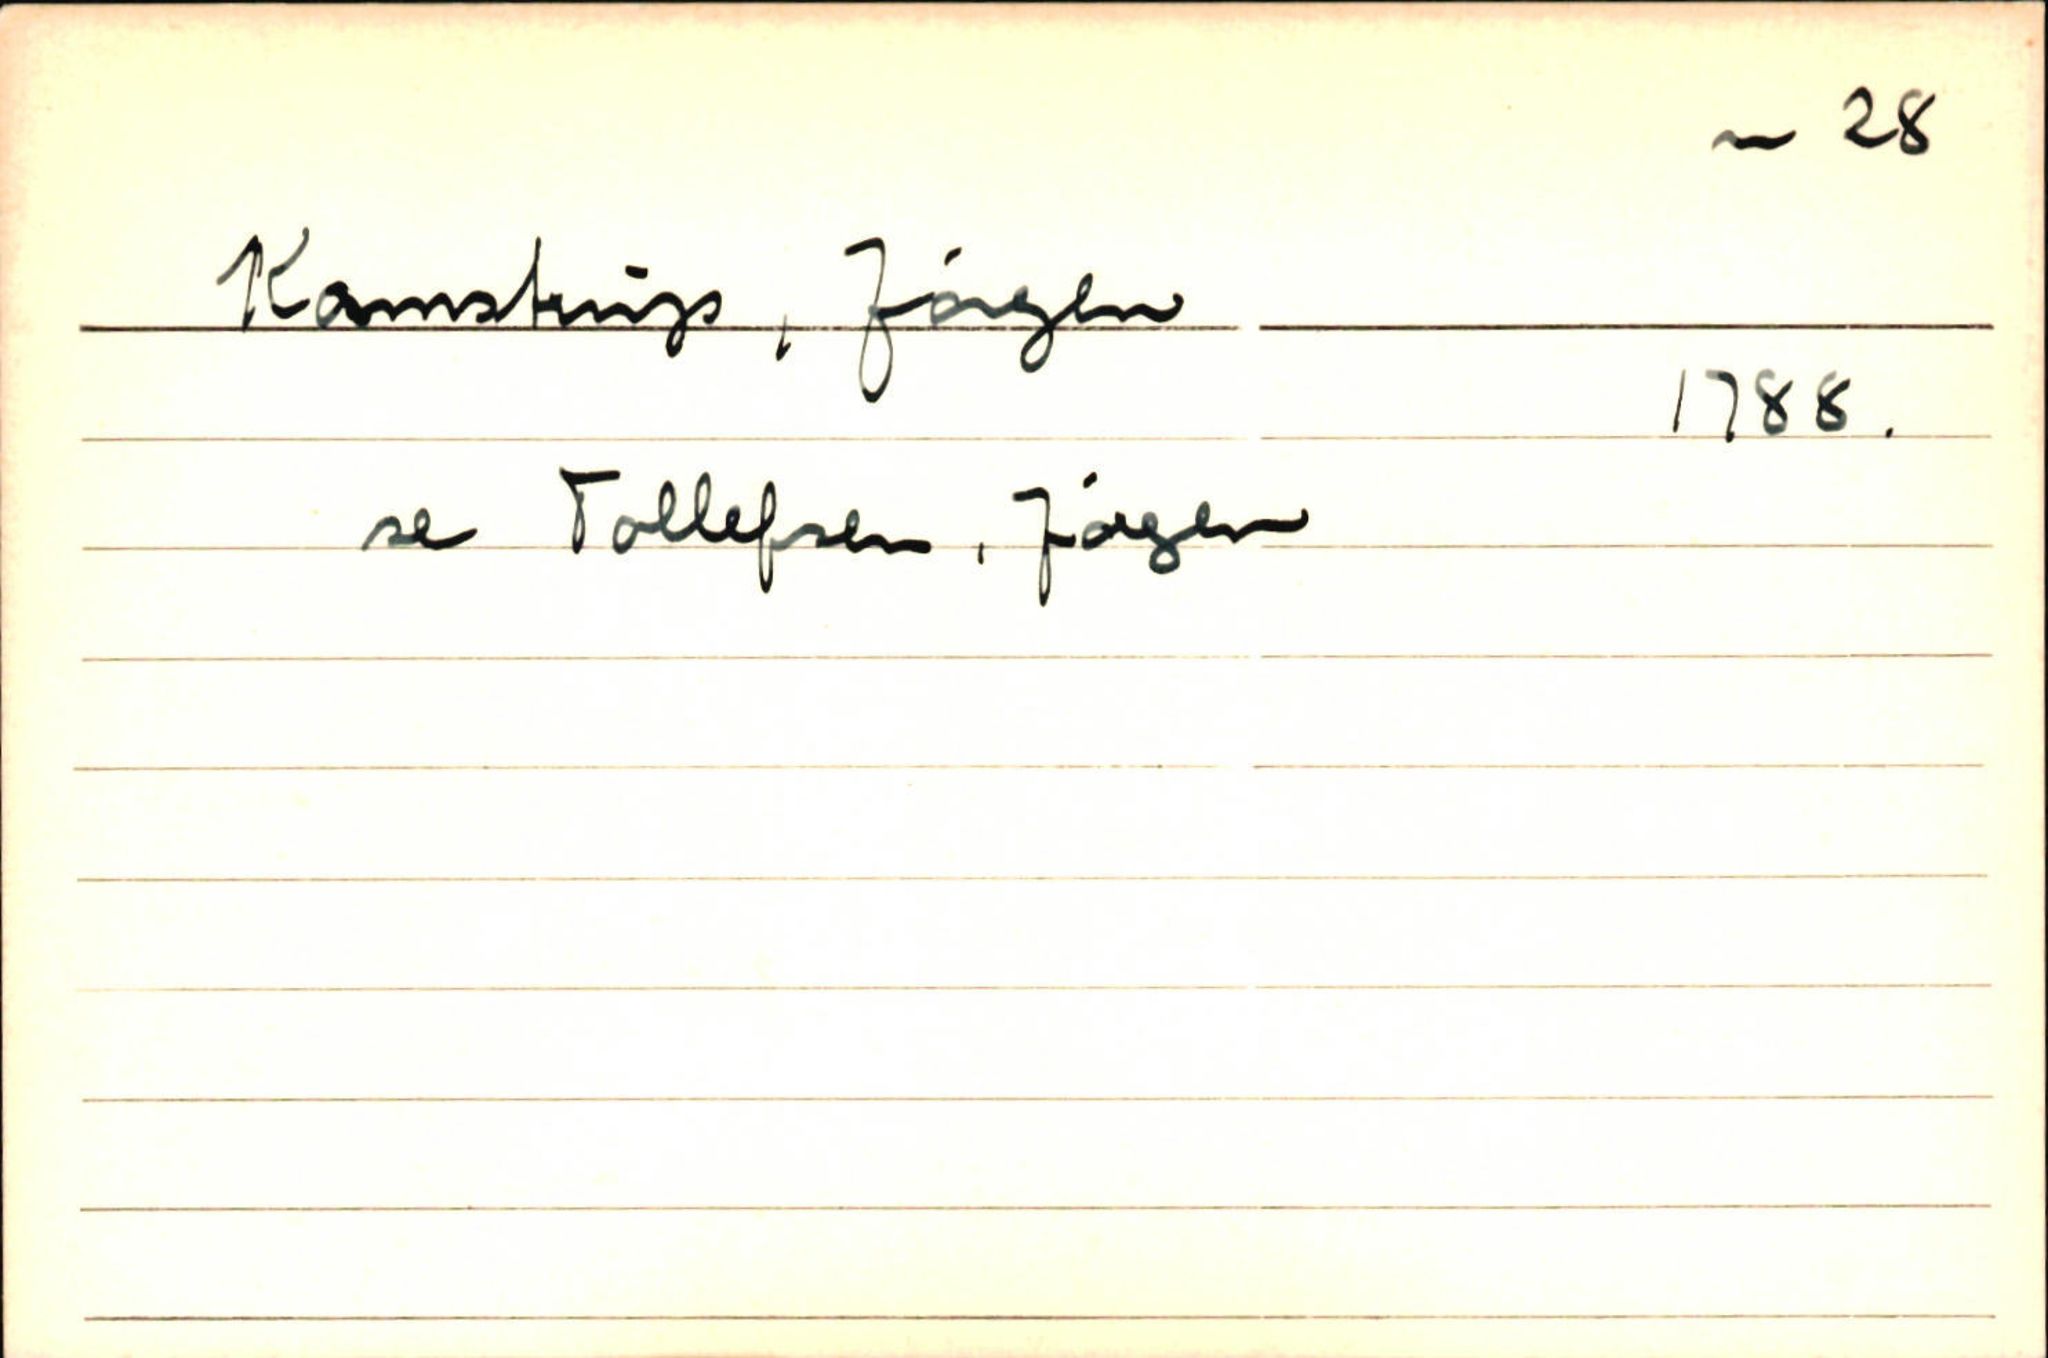 ~ 28
Kamstrup, Jörgen
1788.
se Tollefsen, Jörgen